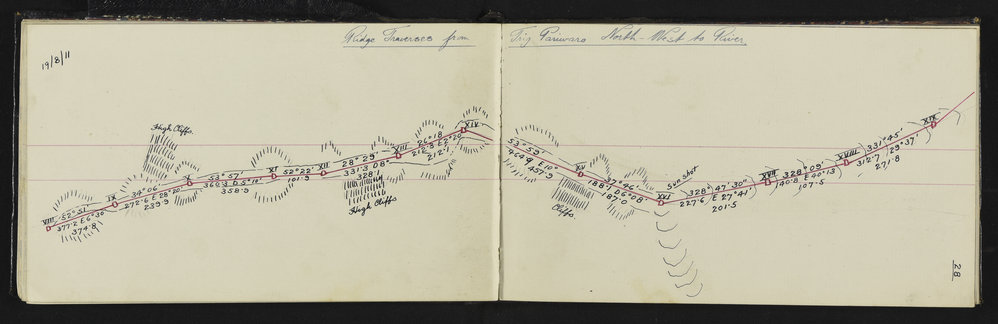 Ridge Traverses from Trig Paruwara North-West to River.
19/8/11
High Cliffs.
VIII
52°51'
377.2 E 6°30'
374.8
IX
34°06'
272.6 E 28°20'
239.9
X
53°57'
360.3 D 5°10'
358.9
XI
52°22'
101.9
XII
28°29'
331.3 D 8°
328.1
High Cliffs
XIII
26°18'
212.3 E 2°20'
212.1
XIV
53°59'
464.9 E 10°
457.9
XV
188.1 D 6°08'
187.0
Cliffs
XVI
Sun Shot
328° 47' 30"
227.6 E 27°41'
201.5
XVII
328°09'
140.8 E 40°13'
107.5
XVIII
331°45'
312.7 29°37'
271.8
XIX
28